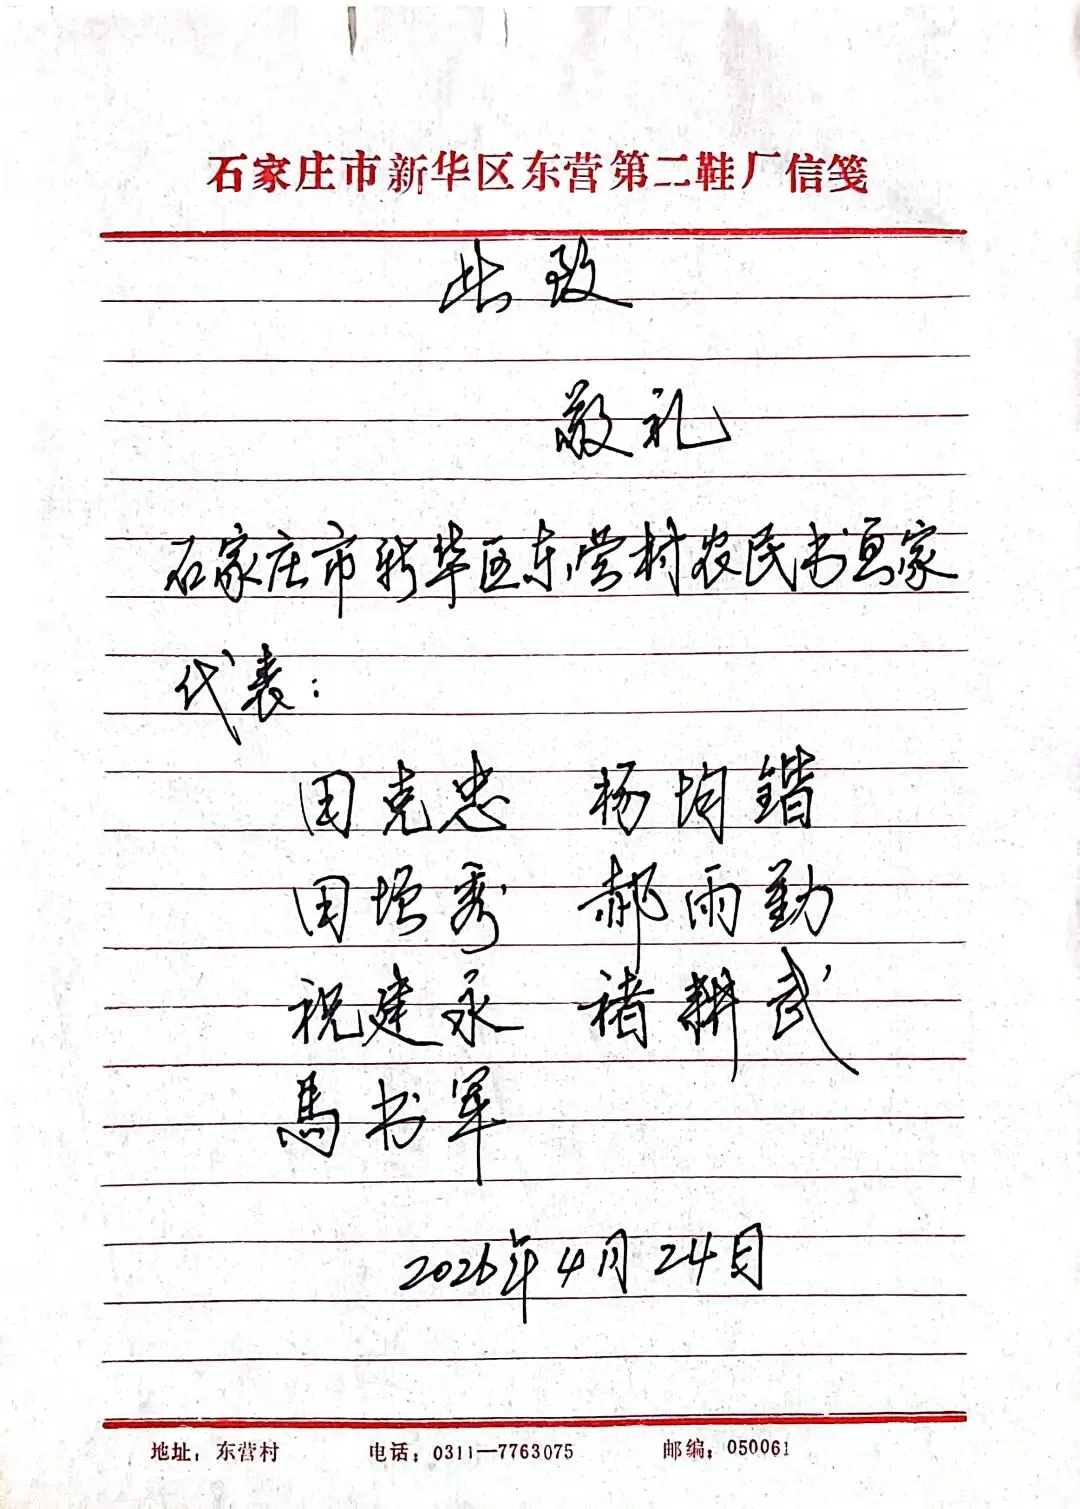 石家庄市新华区东营第二鞋厂信笺
此致
敬礼
石家庄市新华区东营村农民书画家
代表：
田克忠 杨均锴
田增秀 郝雨勤
祝建永 褚耕武
馬书军
2026年4月24日
地址：东营村 电话：0311—7763075 邮编：050061